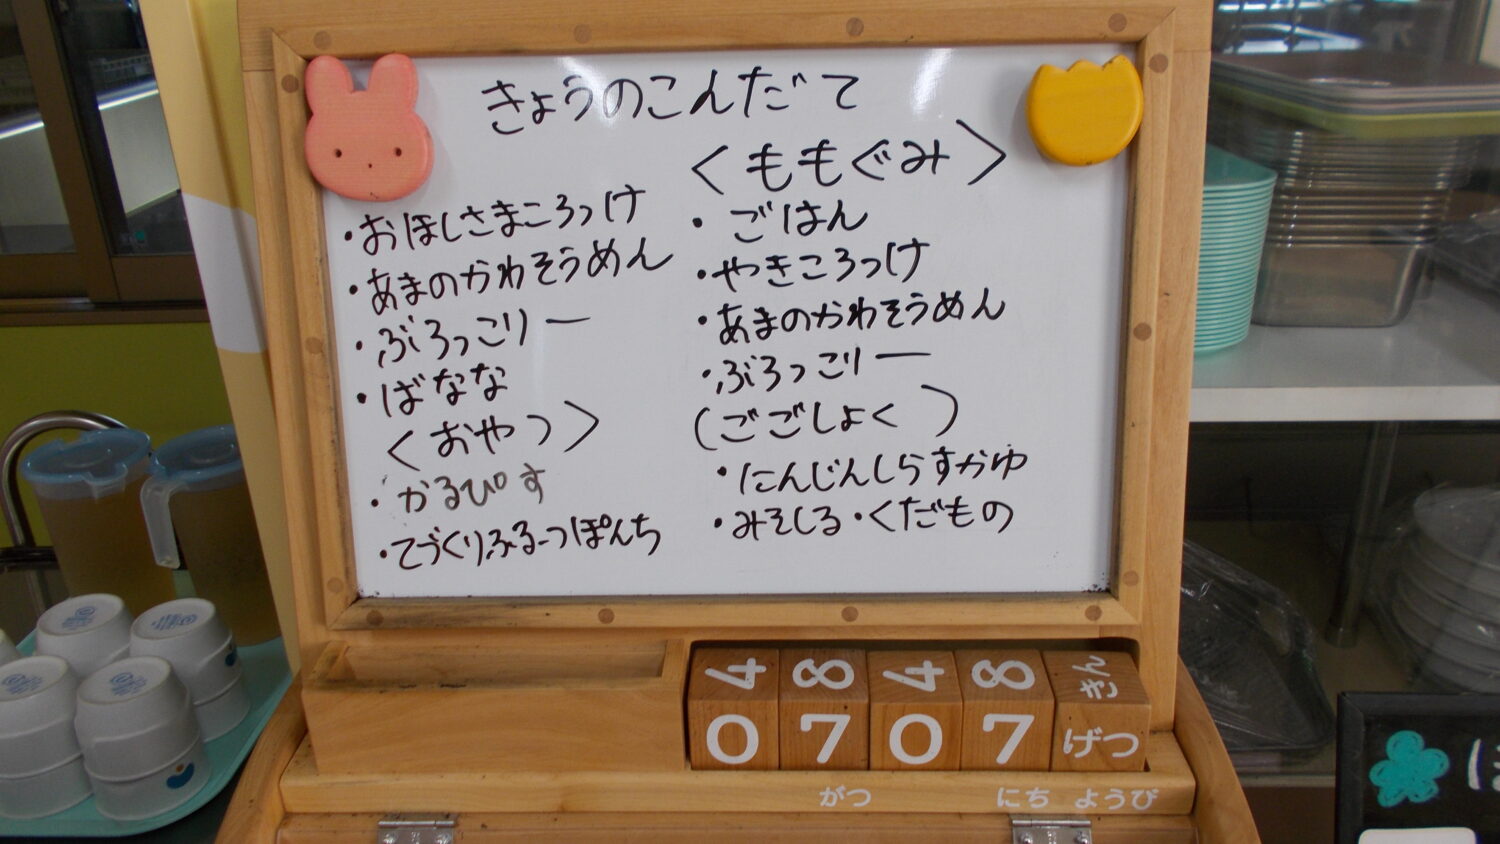 きょうのこんだて
・おほしさまころっけ
・あまのかわそうめん
・ぶろっこりー
・ばなな
<おやつ>
・かるぴす
・てづくりふるーつぽんち
<ももぐみ>
・ごはん
・やきころっけ
・あまのかわそうめん
・ぶろっこりー
(ごごしょく)
・にんじんしらすかゆ
・みそしる・くだもの
4 8 4 8 きん
0 7 0 7 げつ
がつ にち ようび